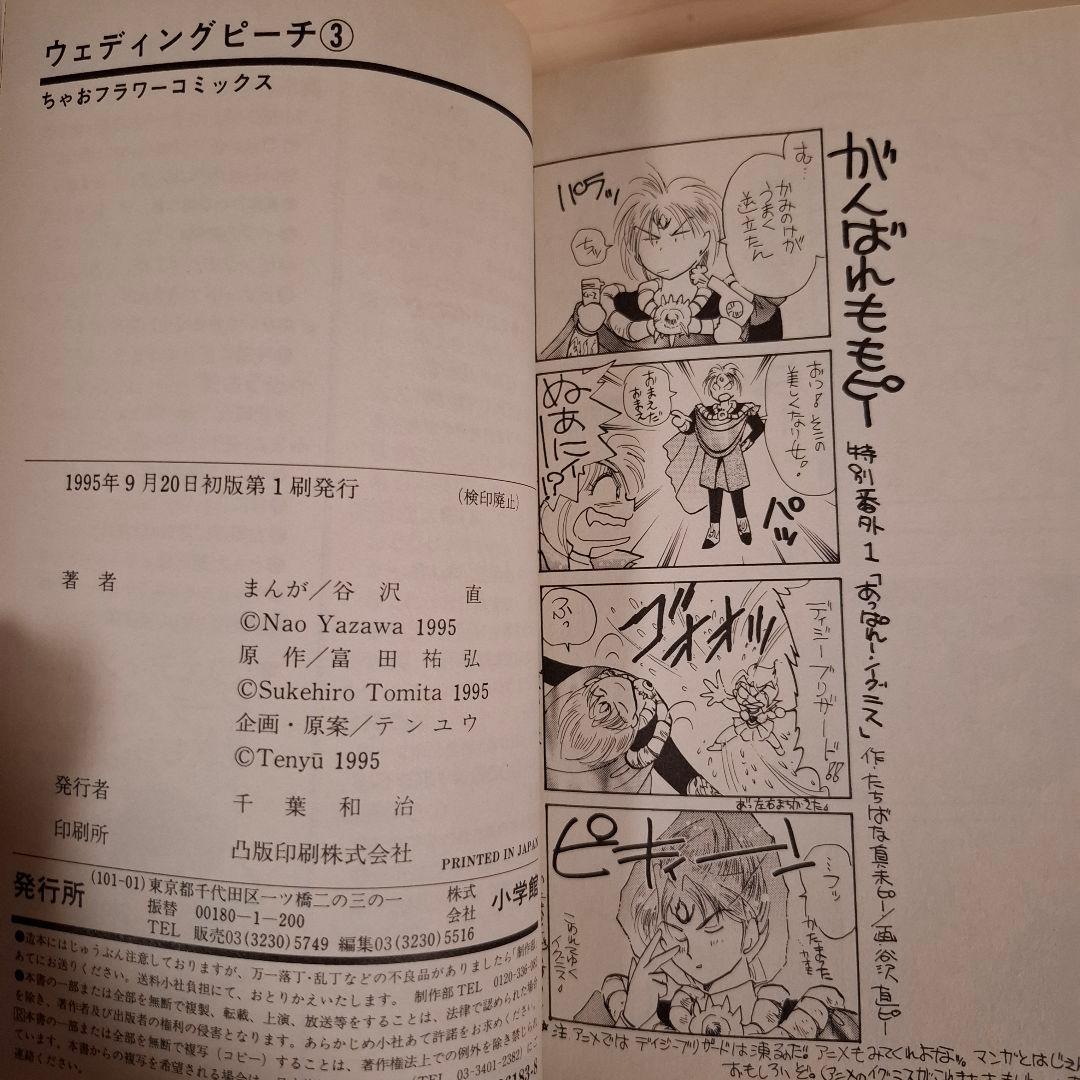 ウェディングピーチ③
ちゃおフラワーコミックス
1995年9月20日初版第1刷発行
(検印廃止)
著者 まんが/谷沢 直
©Nao Yazawa 1995
原作/富田祐弘
©Sukehiro Tomita 1995
企画・原案/テンユウ
©Tenyū 1995
発行者 千葉和治
印刷所 凸版印刷株式会社
PRINTED IN JAPAN
発行所 (101-01)東京都千代田区一ツ橋二の三の一 株式会社 小学館
振替 00180-1-200
TEL 販売03(3230)5749 編集03(3230)5516
●造本にはじゅうぶん注意しておりますが、万一落丁・乱丁などの不良品がありましたら「制作部」
あてにお送りください。送料小社負担にて、おとりかえいたします。 制作部TEL 0120-336-082
●本書の一部または全部を無断で複製、転載、上演、放送等をすることは、法律で認められた場合
を除き、著作者及び出版者の権利の侵害となります。あらかじめ小社あて許諾をお求めください。
本書の一部または全部を無断で複写(コピー)することは、著作権法上での例外を除き禁じられ
ています。本書からの複写を希望される場合は、
(03-3401-2382)に
連絡ください。
がんばれももピー
特別番外1「あっぱれ!イグニス」
作・たちばな真未ピー/画谷沢直ピー
む…
かみのけが
うまく
逆立たん
パラッ
ちッ
おっ!そこの
美しくない女!
おまえだ
おまえ
ぬぁにィ!?
パッ
デイジーブリザード!!
ゴォオォッ
ふっ
あっ左右まちがえた。
ピキィーン
ミフッ
かたまった
これでゆく
イグニス!
★注 アニメではデイジーブリザードは凍るんだ。アニメもみてくれよな。マンガとはじえ
おもしろいぞ。